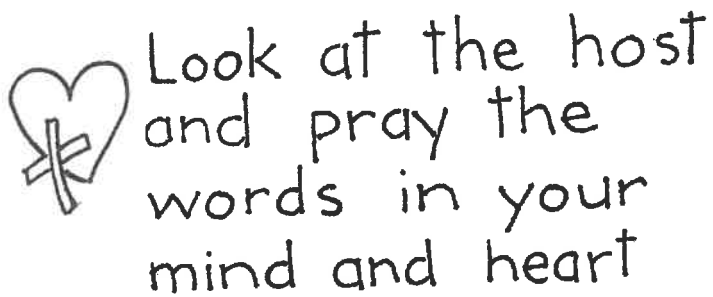 Look at the host
and pray the
words in your
mind and heart